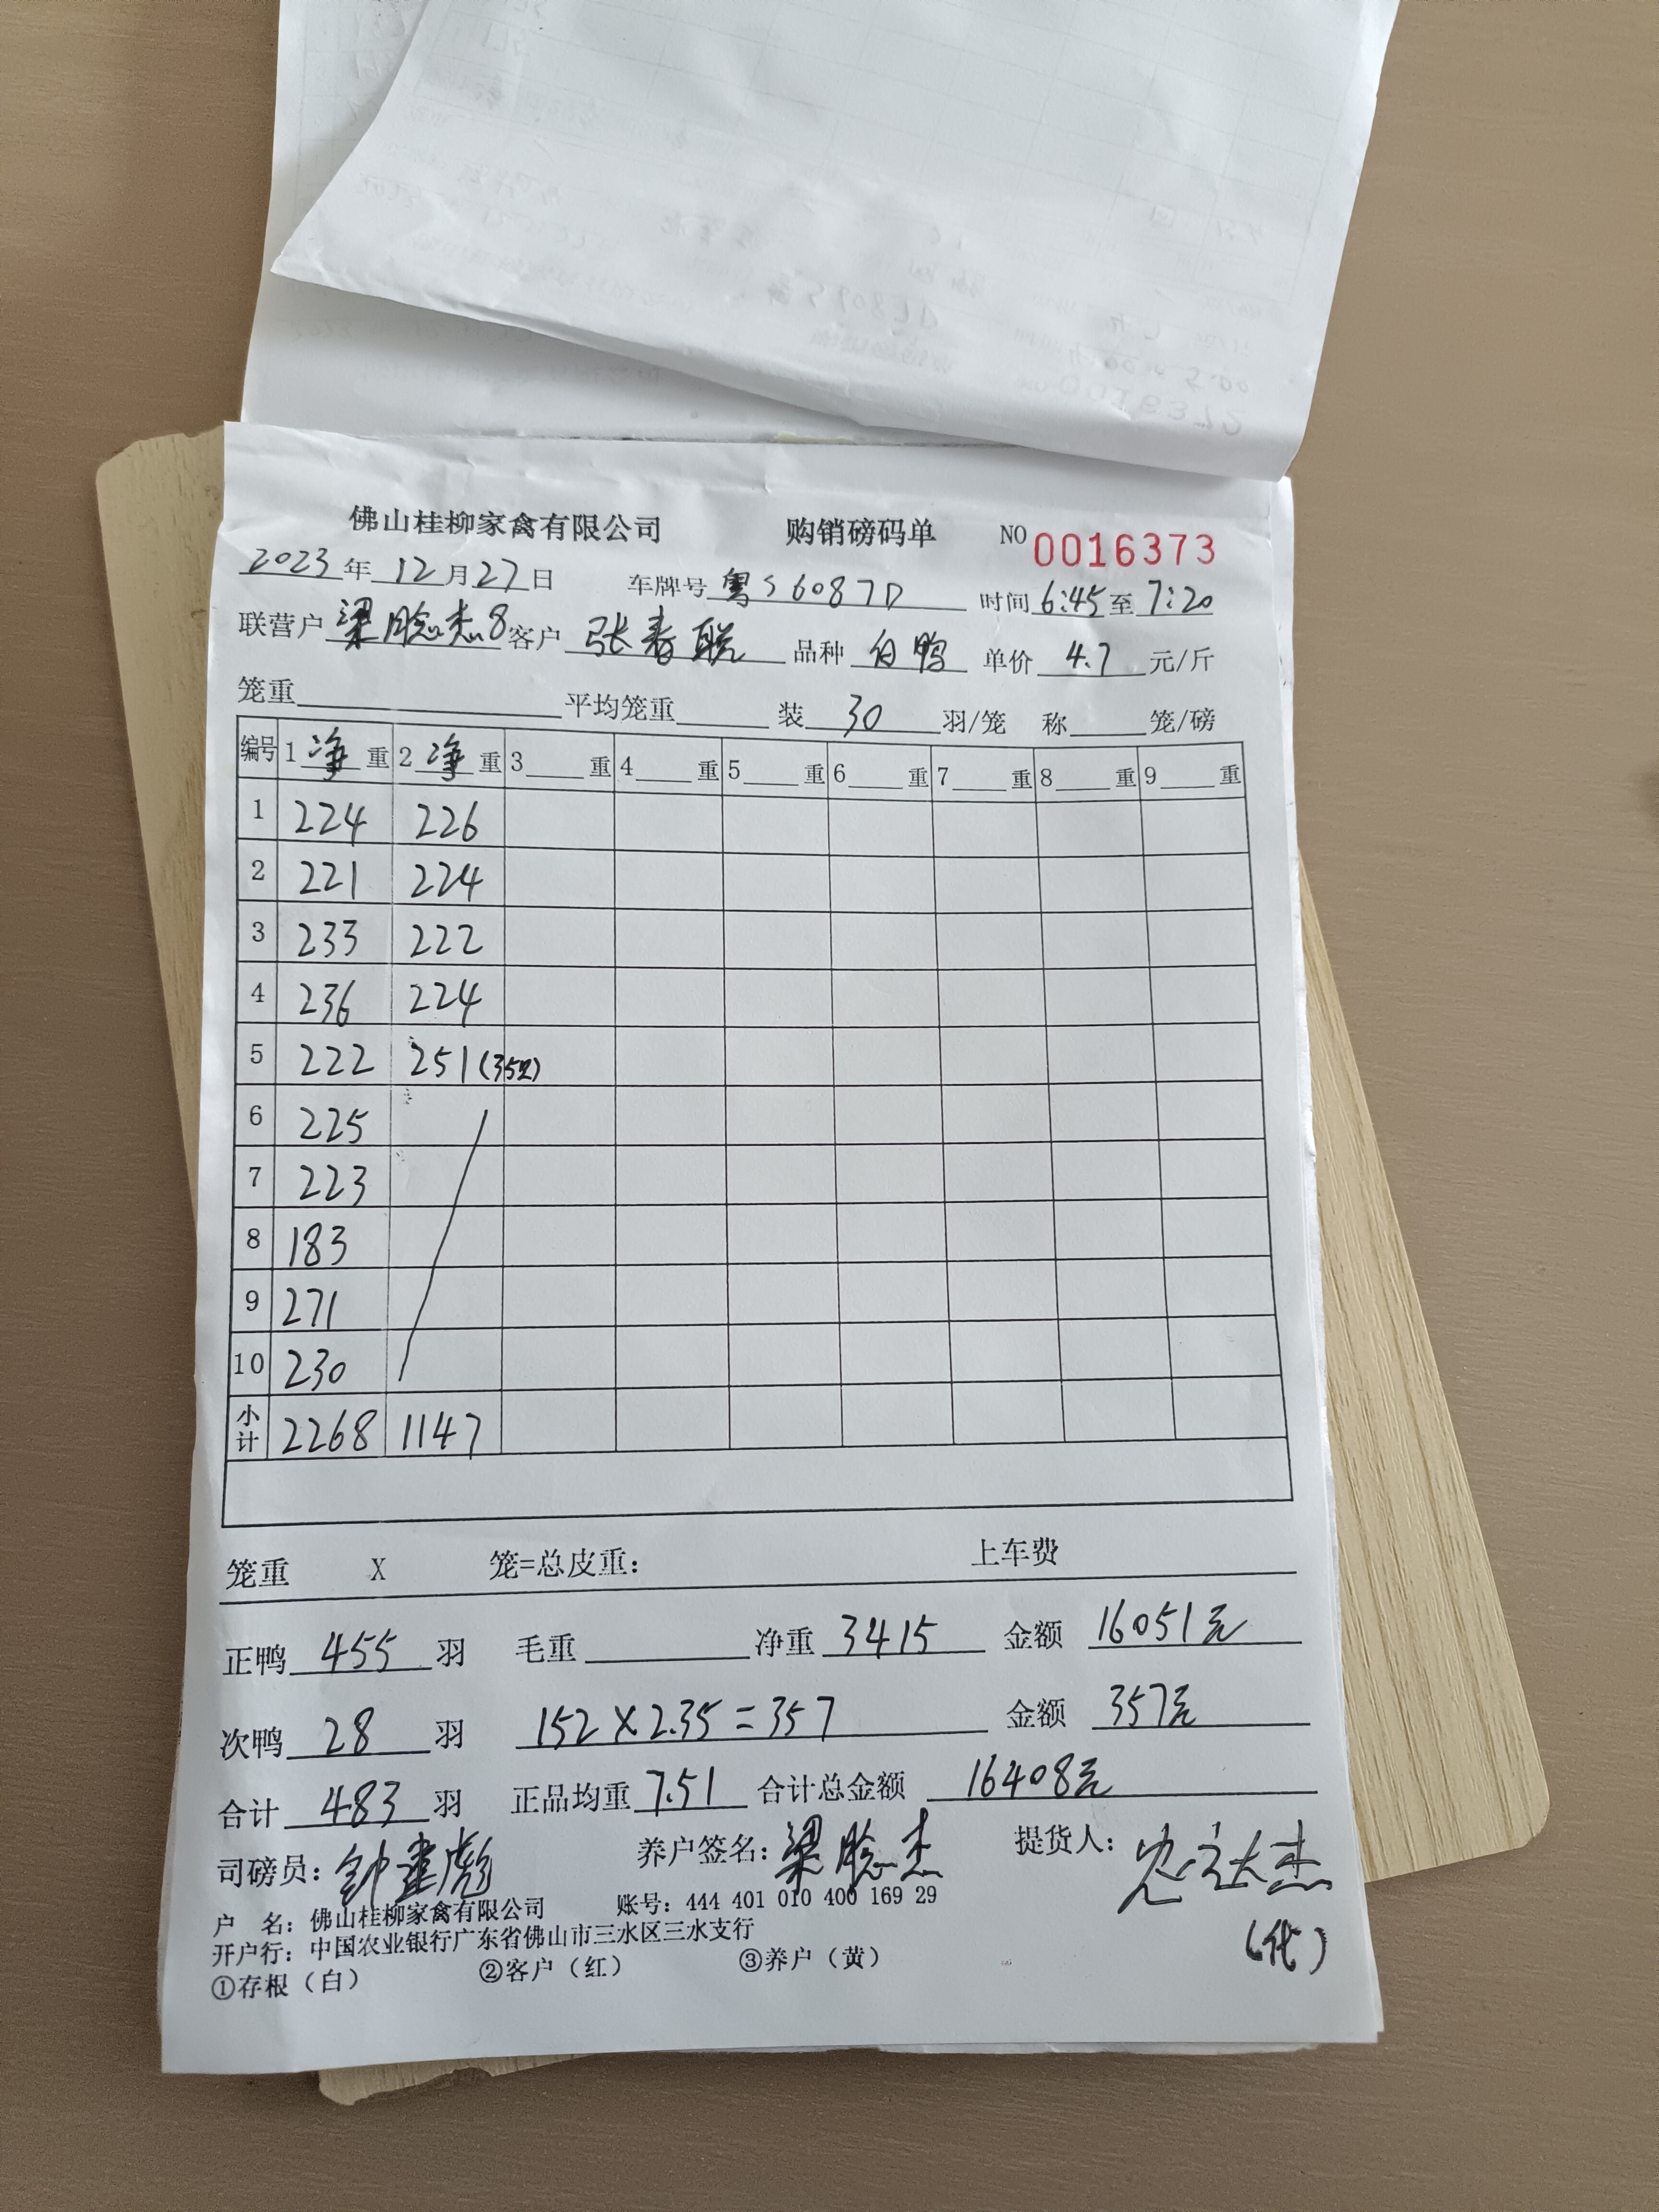 佛山桂柳家禽有限公司 购销磅码单 NO 0016373
2023年12月27日 车牌号 粤S6087D 时间 6:45至7:20
联营户 梁 杰8 客户 张春 品种 白鸭 单价 4.7 元/斤
笼重 平均笼重 装 30 羽/笼 称 笼/磅
编号 1 净 重 2 净 重 3 重 4 重 5 重 6 重 7 重 8 重 9 重
1 224 226
2 221 224
3 233 222
4 236 224
5 222 251(35只)
6 225
7 223
8 183
9 271
10 230
小计 2268 1147
笼重 X 笼=总皮重: 上车费
正鸭 455 羽 毛重 净重 3415 金额 16051元
次鸭 28 羽 152×2.35=357 金额 357元
合计 483 羽 正品均重 7.51 合计总金额 16408元
司磅员: 钟建彪 养户签名: 梁 杰 提货人: 杰
(代)
户 名: 佛山桂柳家禽有限公司 账号: 444 401 010 400 169 29
开户行: 中国农业银行广东省佛山市三水区三水支行
①存根（白） ②客户（红） ③养户（黄）